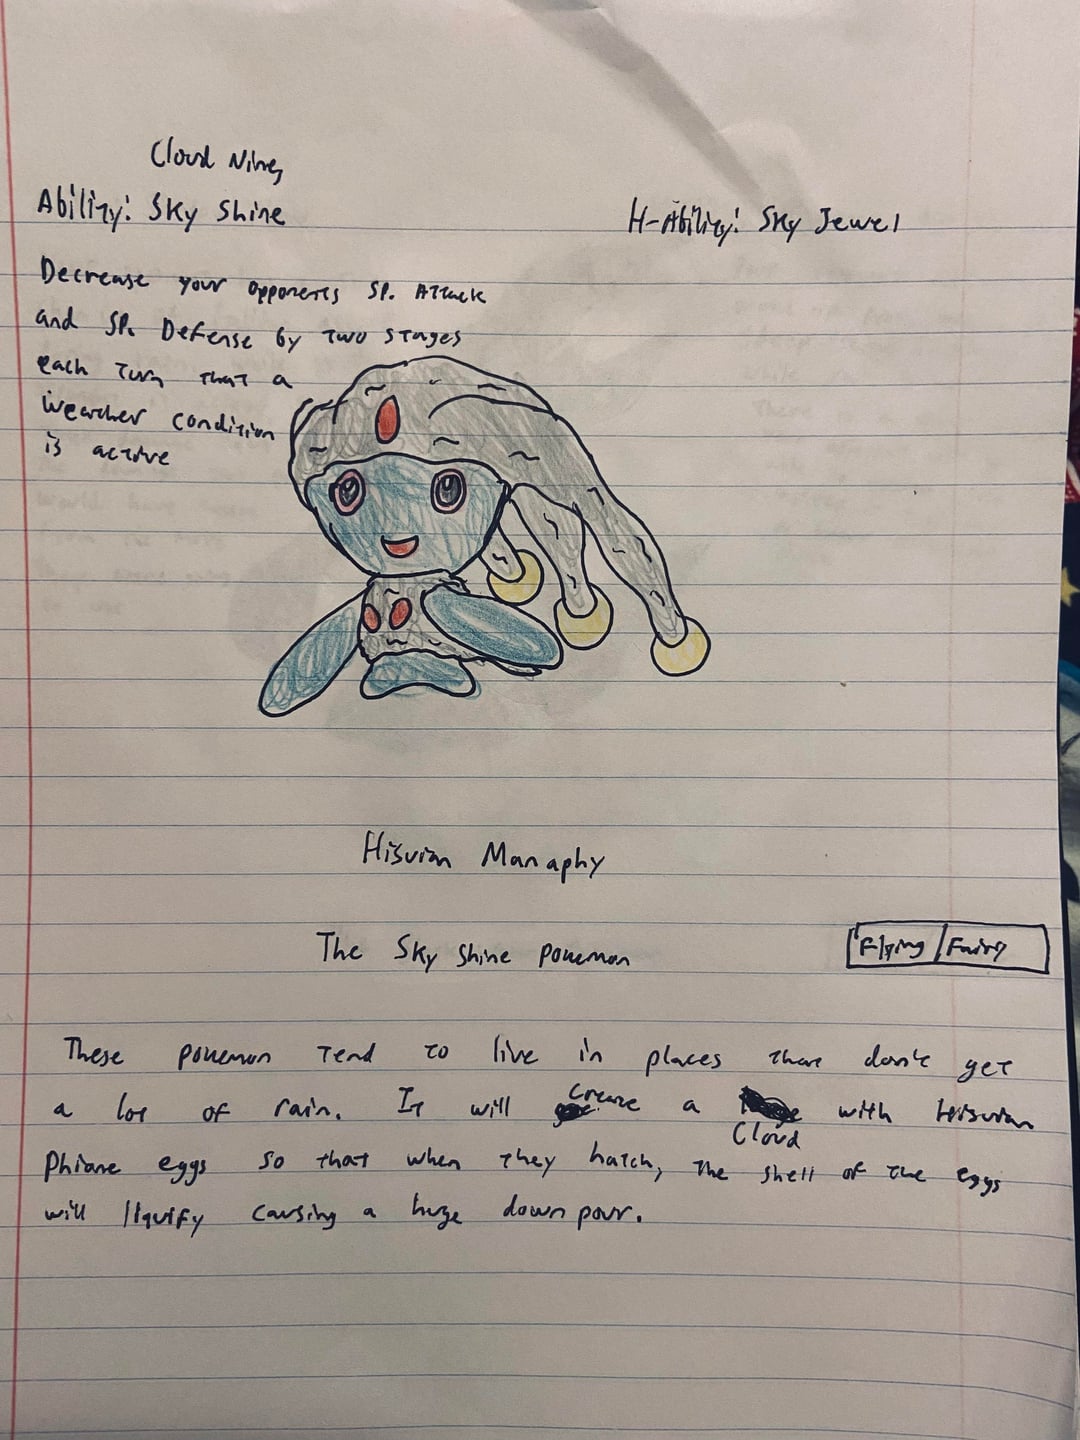 Cloud Nine,
Ability: Sky Shine
H-Ability: Sky Jewel
Decrease your opponents SP. Attack
and SP. Defense by two stages
each turn that a
weather condition
is active
Hisuian Manaphy
The Sky Shine Pokemon
Flying/Fairy
These pokemon tend to live in places that don't get
a lot of rain. It will create a with Hisuian
Cloud
Phione eggs so that when they hatch, the shell of the eggs
will liquify causing a huge down pour.